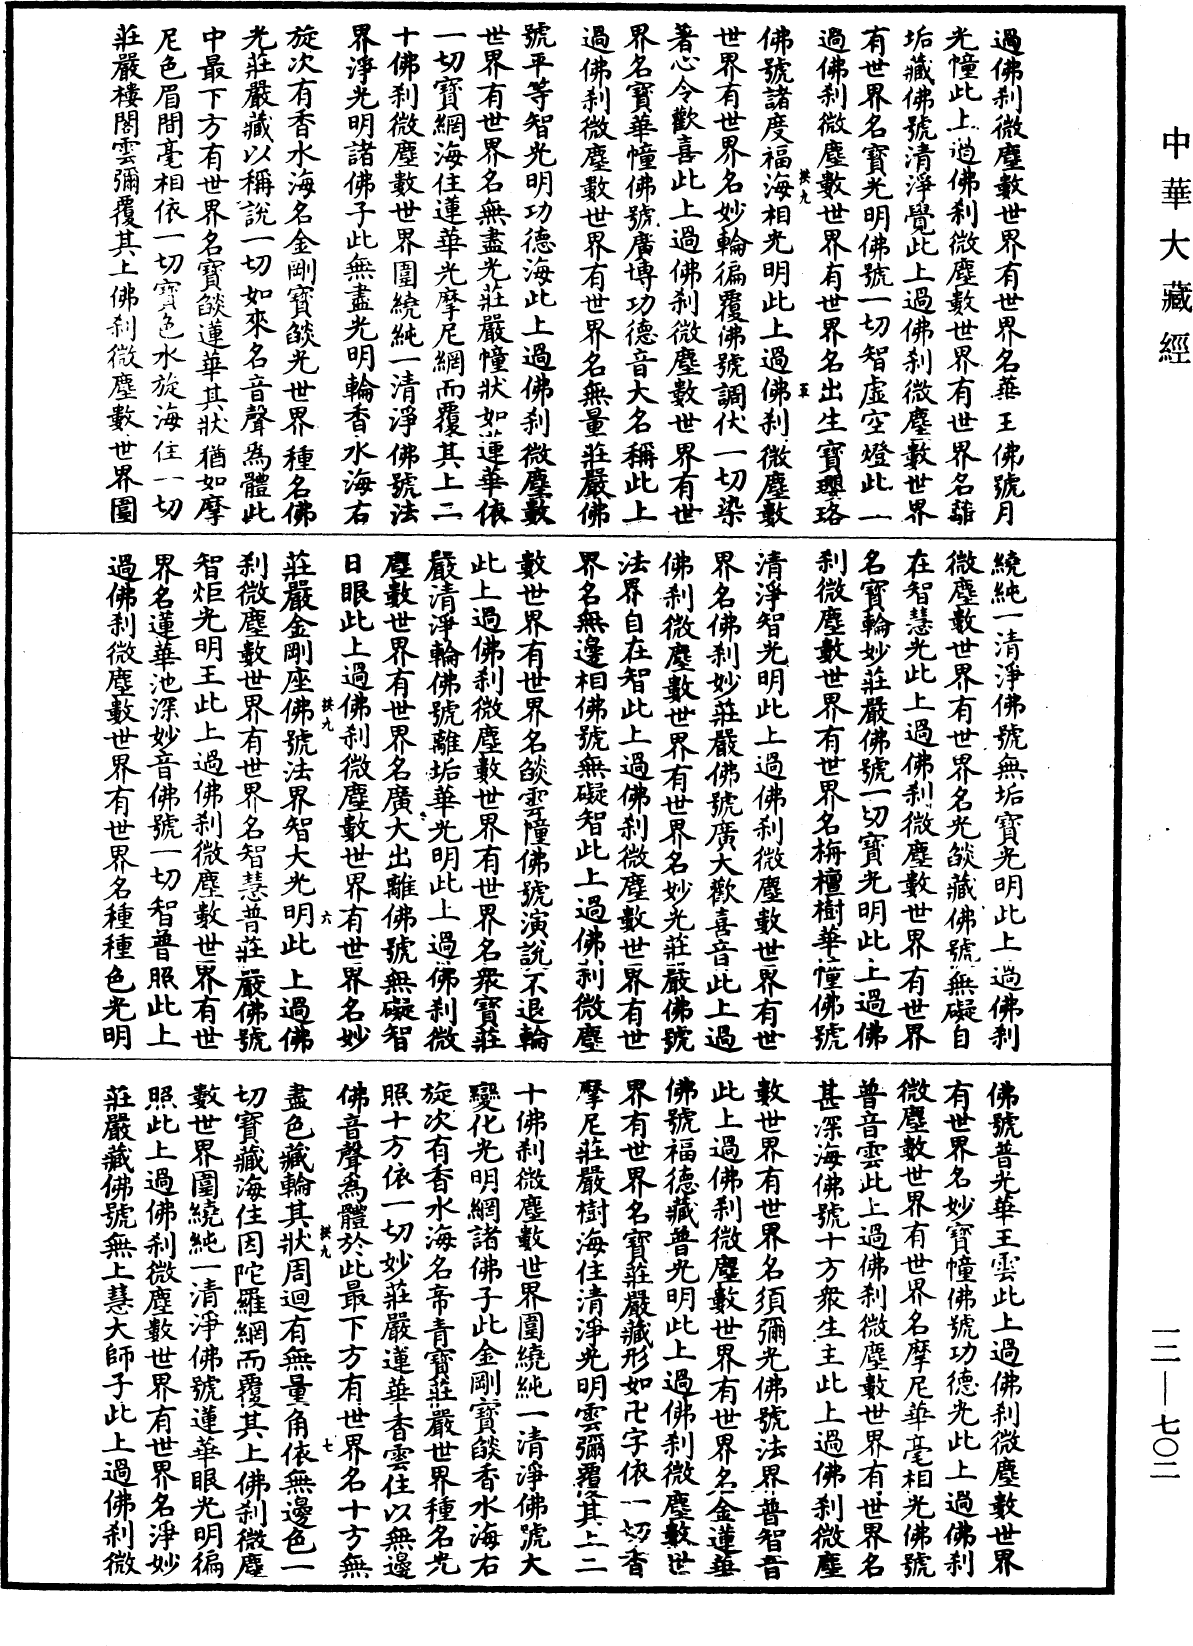 中華大藏經
過佛刹微塵數世界有世界名華王佛號月
光幢此上過佛刹微塵數世界有世界名離
垢藏佛號清淨覺此上過佛刹微塵數世界
有世界名寶光明佛號一切智虛空燈此上
過佛刹微塵數世界有世界名出生寶瓔珞
佛號諸度福海相光明此上過佛刹微塵數
世界有世界名妙輪徧覆佛號調伏一切染
著心令歡喜此上過佛刹微塵數世界有世
界名寶華幢佛號廣博功德音大名稱此上
過佛刹微塵數世界有世界名無量莊嚴佛
號平等智光明功德海此上過佛刹微塵數
世界有世界名無盡光莊嚴幢狀如蓮華依
一切寶網海住蓮華光摩尼網而覆其上二
十佛刹微塵數世界圍繞純一清淨佛號法
界淨光明諸佛子此無盡光明輪香水海右
旋次有香水海名金剛寶燄光世界種名佛
光莊嚴藏以稱說一切如來名音聲爲體此
中最下方有世界名寶燄蓮華其狀猶如摩
尼色眉間毫相依一切寶色水旋海住一切
莊嚴樓閣雲彌覆其上佛刹微塵數世界圍
繞純一清淨佛號無垢寶光明此上過佛刹
微塵數世界有世界名光燄藏佛號無礙自
在智慧光此上過佛刹微塵數世界有世界
名寶輪妙莊嚴佛號一切寶光明此上過佛
刹微塵數世界有世界名栴檀樹華幢佛號
清淨智光明此上過佛刹微塵數世界有世
界名佛刹妙莊嚴佛號廣大歡喜音此上過
佛刹微塵數世界有世界名妙光莊嚴佛號
法界自在智此上過佛刹微塵數世界有世
界名無邊相佛號無礙智此上過佛刹微塵
數世界有世界名燄雲幢佛號演說不退輪
此上過佛刹微塵數世界有世界名衆寶莊
嚴清淨輪佛號離垢華光明此上過佛刹微
塵數世界有世界名廣大出離佛號無礙智
日眼此上過佛刹微塵數世界有世界名妙
莊嚴金剛座佛號法界智大光明此上過佛
刹微塵數世界有世界名智慧普莊嚴佛號
智炬光明王此上過佛刹微塵數世界有世
界名蓮華池深妙音佛號一切智普照此上
過佛刹微塵數世界有世界名種種色光明
佛號普光華王雲此上過佛刹微塵數世界
有世界名妙寶幢佛號功德光此上過佛刹
微塵數世界有世界名摩尼華毫相光佛號
普音雲此上過佛刹微塵數世界有世界名
甚深海佛號十方衆生主此上過佛刹微塵
數世界有世界名須彌光佛號法界普智音
此上過佛刹微塵數世界有世界名金蓮華
佛號福德藏普光明此上過佛刹微塵數世
界有世界名寶莊嚴藏形如卍字依一切香
摩尼莊嚴樹海住清淨光明雲彌覆其上二
十佛刹微塵數世界圍繞純一清淨佛號大
變化光明網諸佛子此金剛寶燄香水海右
旋次有香水海名帝青寶莊嚴世界種名光
照十方依一切妙莊嚴蓮華香雲住以無邊
佛音聲爲體於此最下方有世界名十方無
盡色藏輪其狀周迴有無量角依無邊色一
切寶藏海住因陀羅網而覆其上佛刹微塵
數世界圍繞純一清淨佛號蓮華眼光明徧
照此上過佛刹微塵數世界有世界名淨妙
莊嚴藏佛號無上慧大師子此上過佛刹微
一二—七〇二